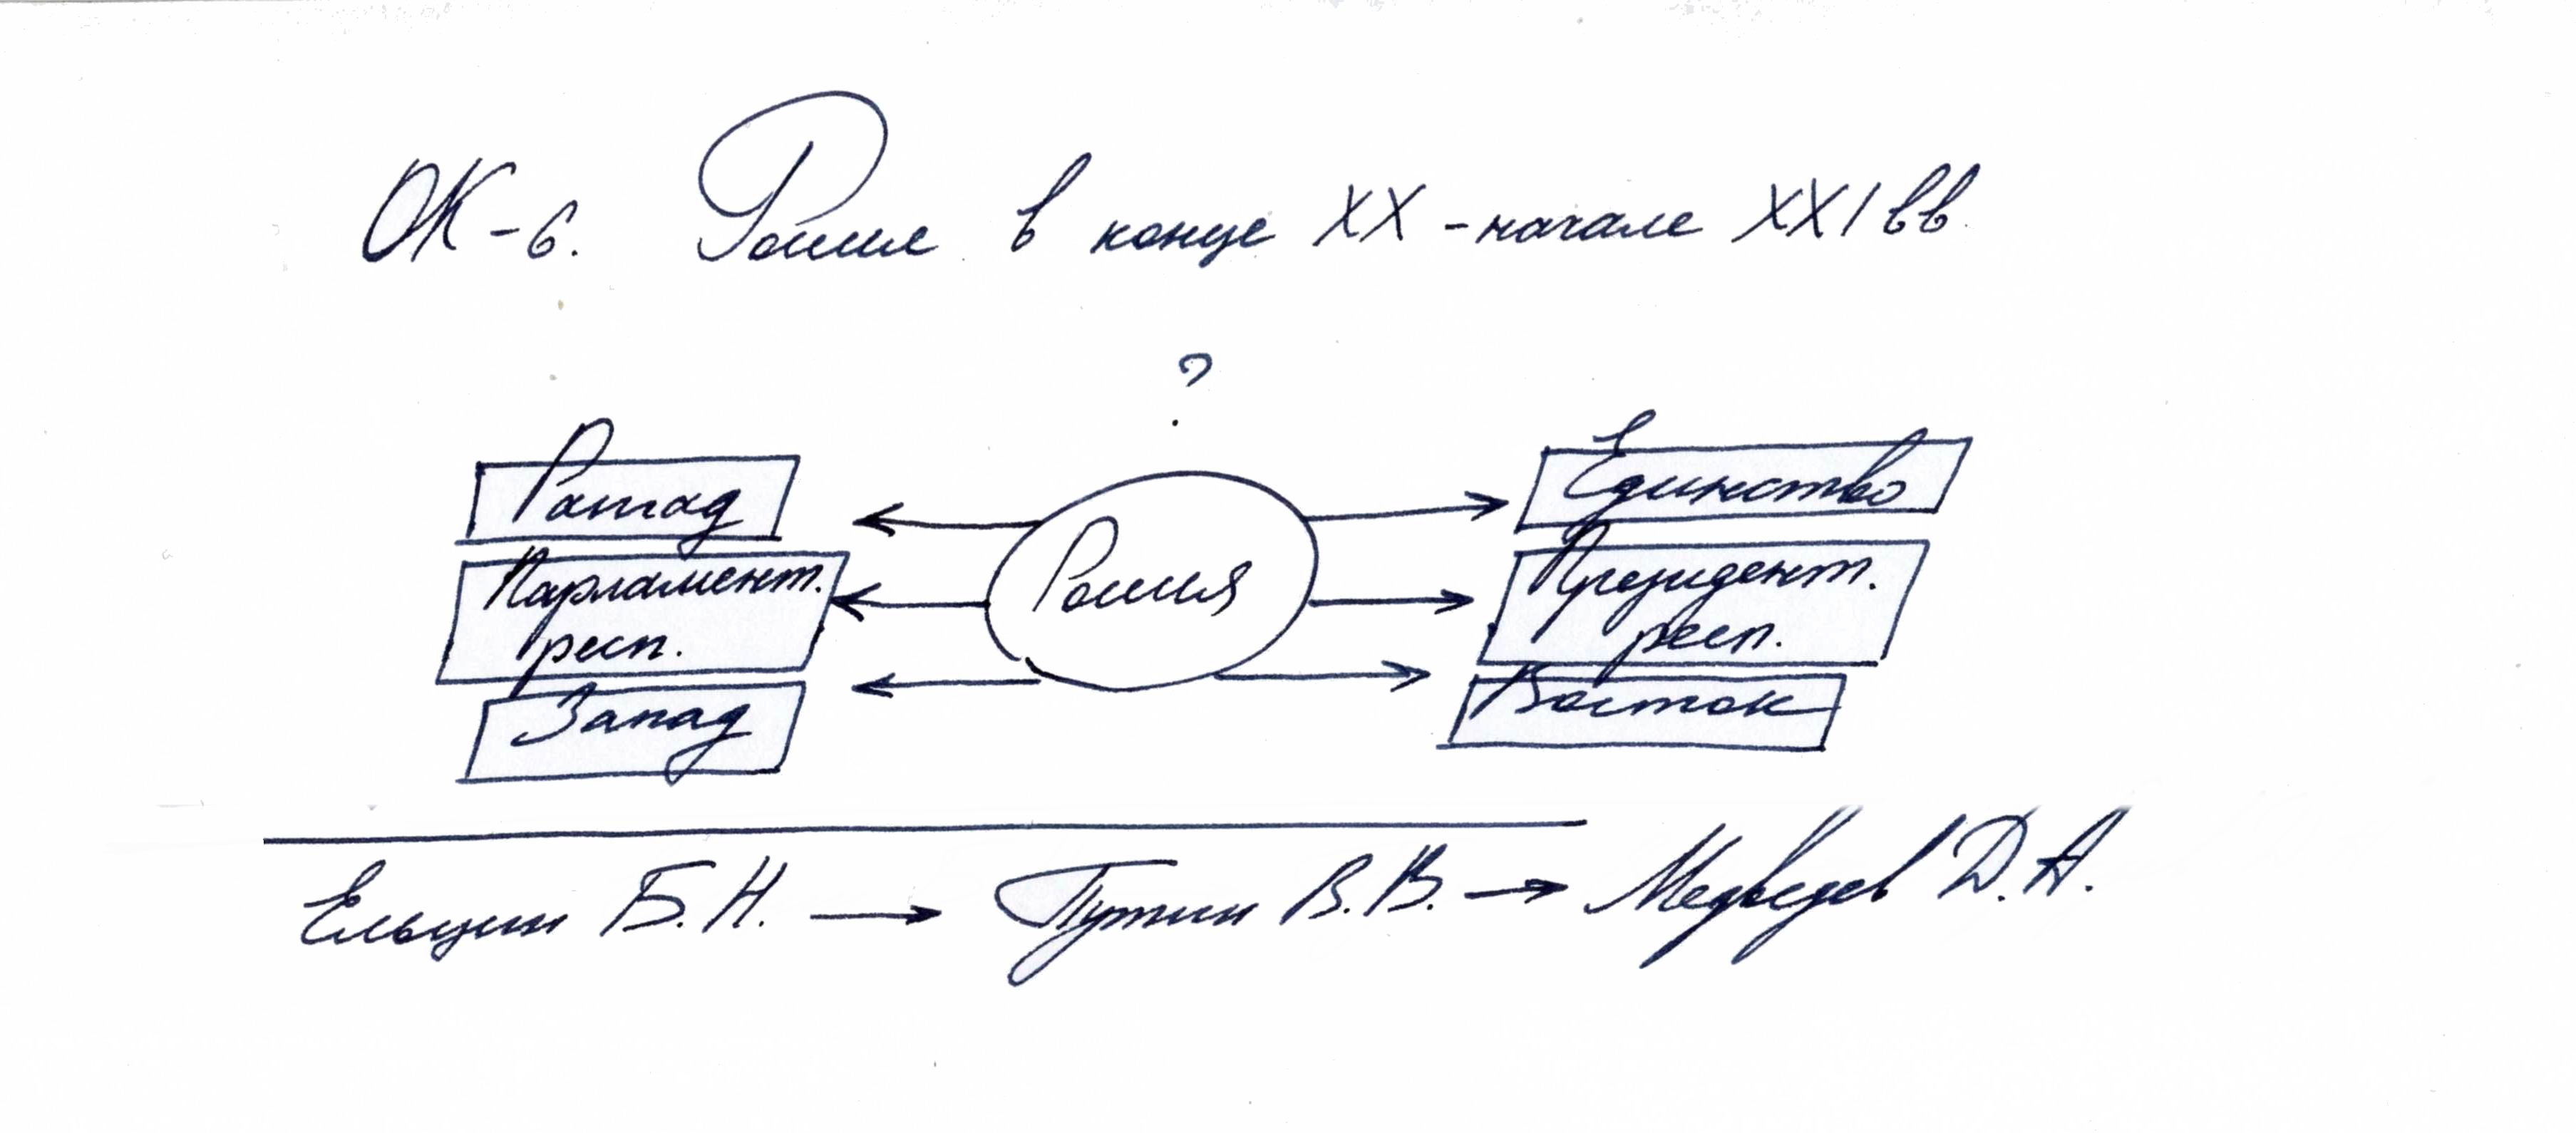 ОК-6. Россия в конце XX-начале XXI вв.
?
Распад
Единство
Россия
Парламент.
респ.
Президент.
респ.
Запад
Восток
Ельцин Б.Н. → Путин В.В. → Медведев Д.А.